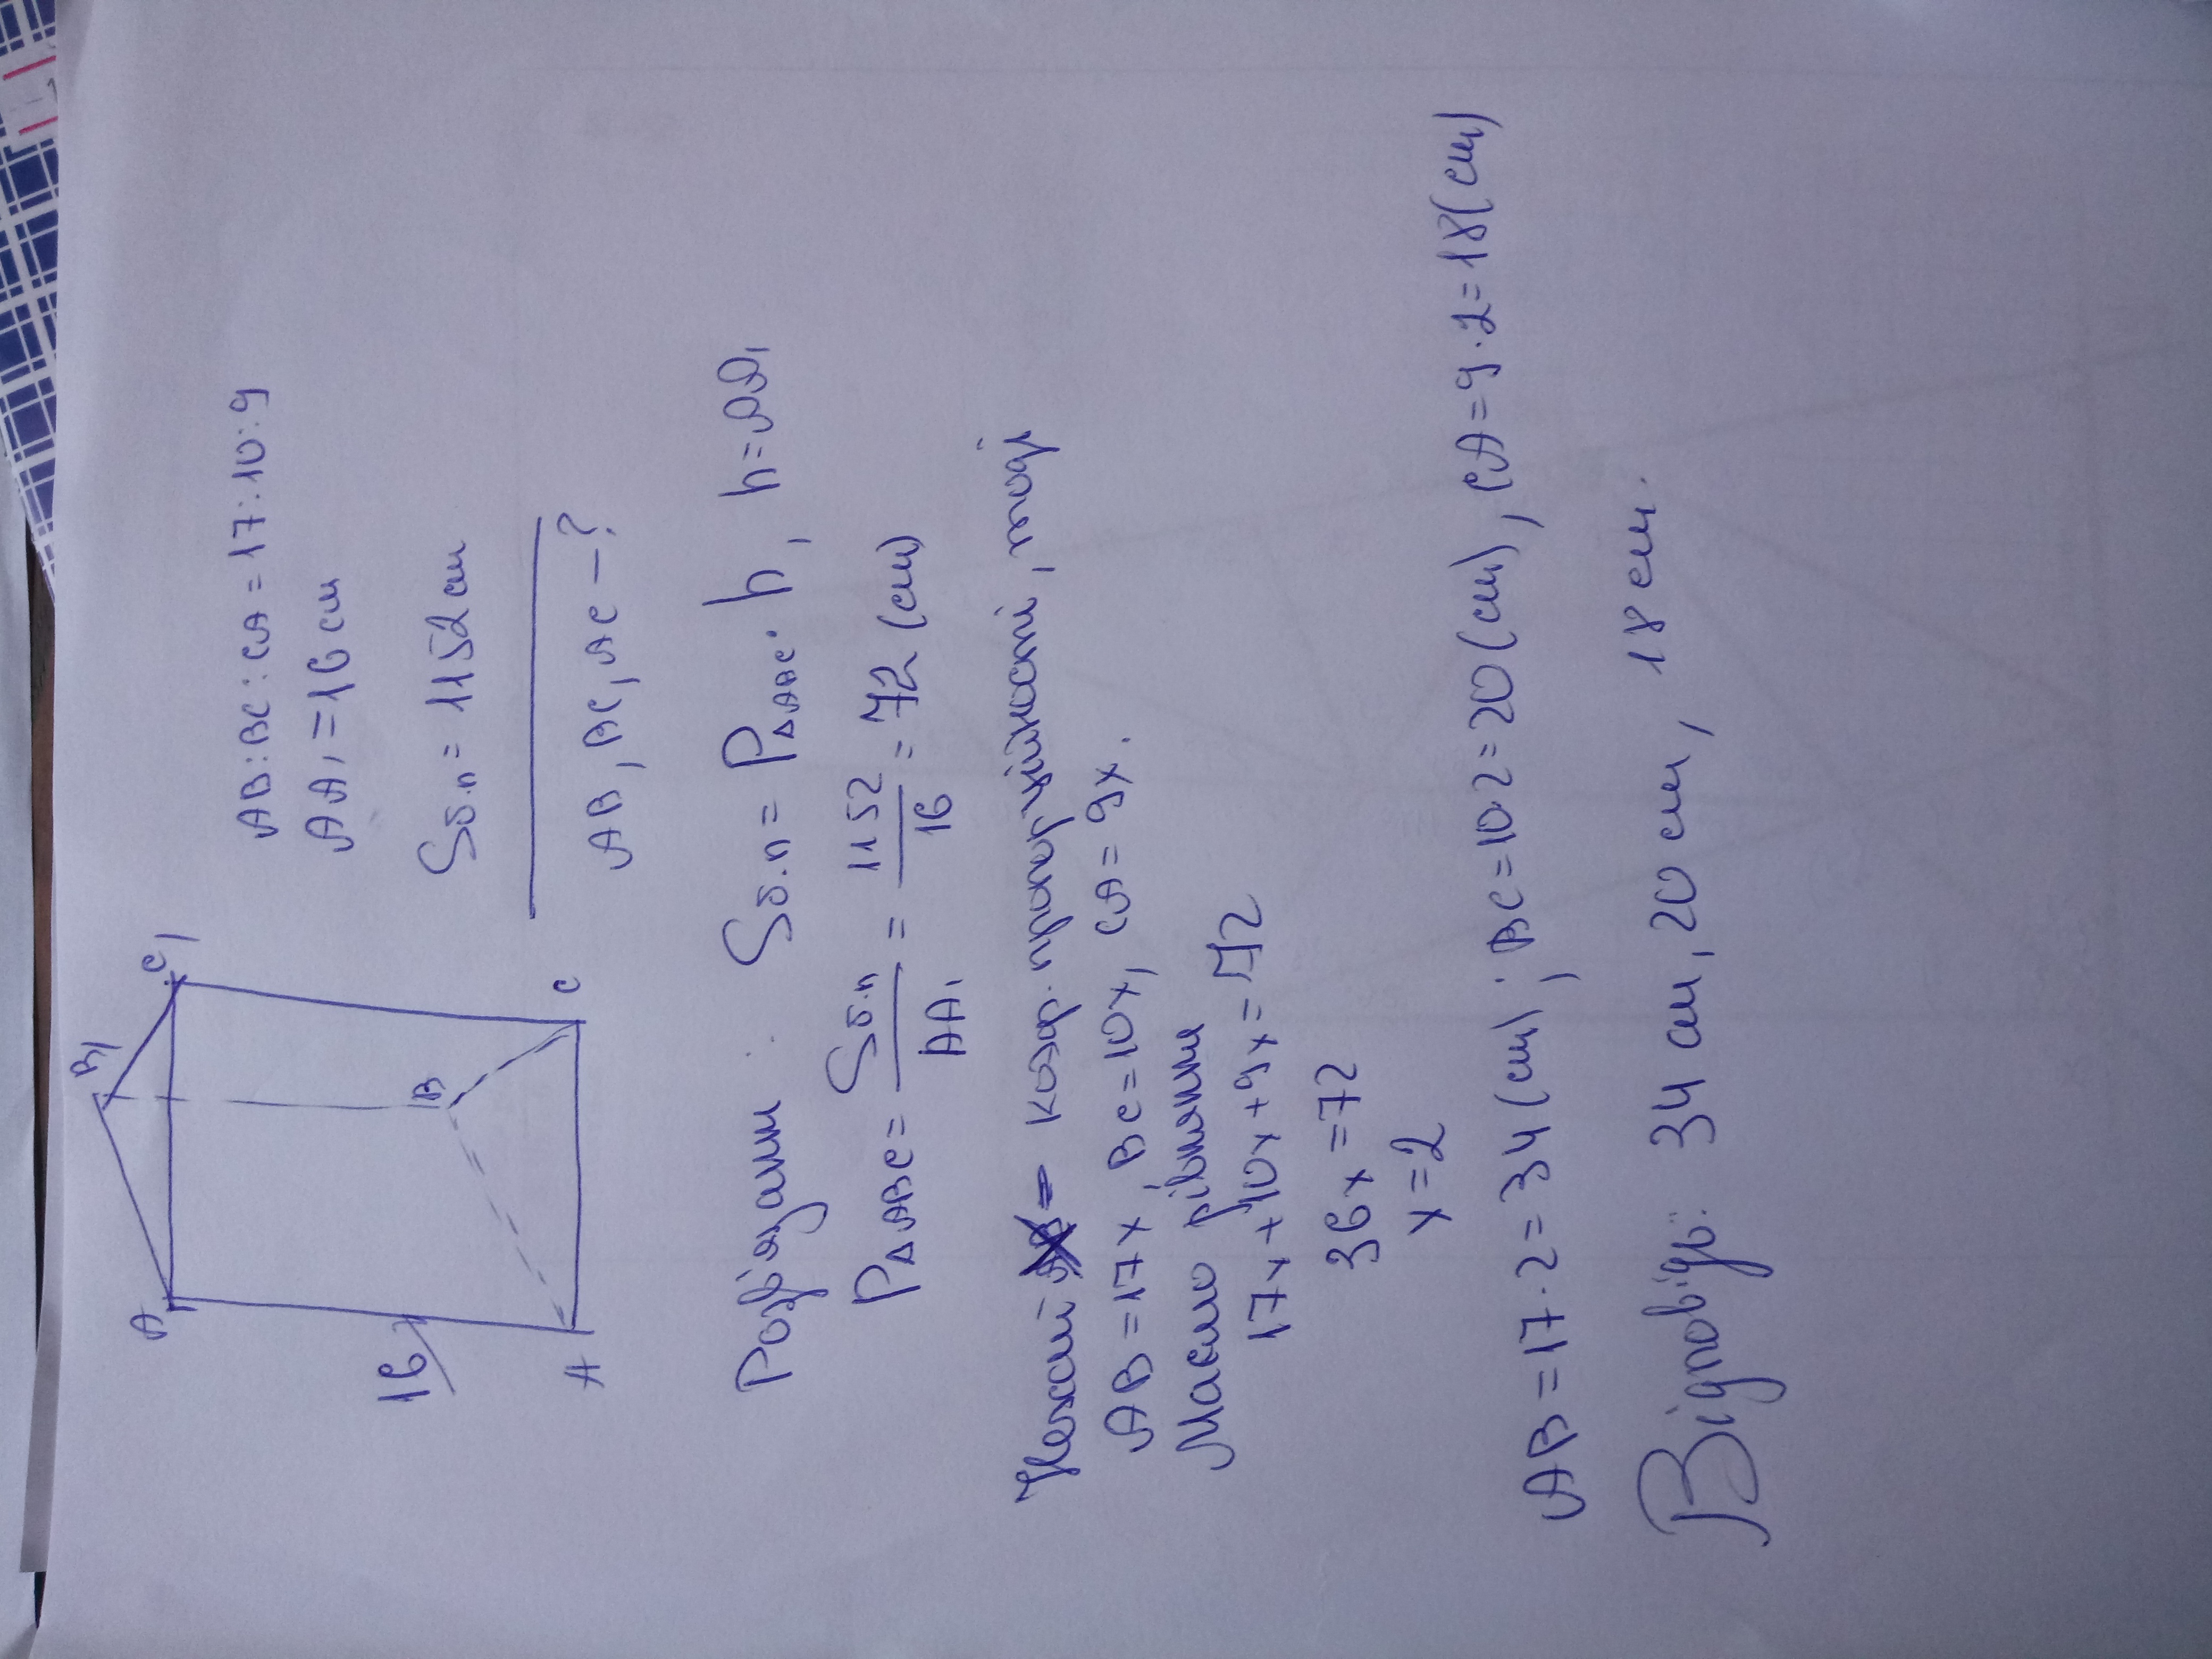 A
B1
C1
16
A
B
C
AB:BC:CA=17:10:9
AA1=16см
Sб.п=1152см
AB, BC, AC –?
Розв'язання: Sб.п=P△ABC·h, h=AA1
P△ABC=Sб.п/AA1=1152/16=72(см)
Нехай х– коэф. пропорційності, тоді
AB=17x, BC=10x, CA=9x.
Маємо рівняння
17x+10x+9x=72
36x=72
x=2
AB=17·2=34(см); BC=10·2=20(см), CA=9·2=18(см)
Відповідь: 34 см, 20 см, 18 см.